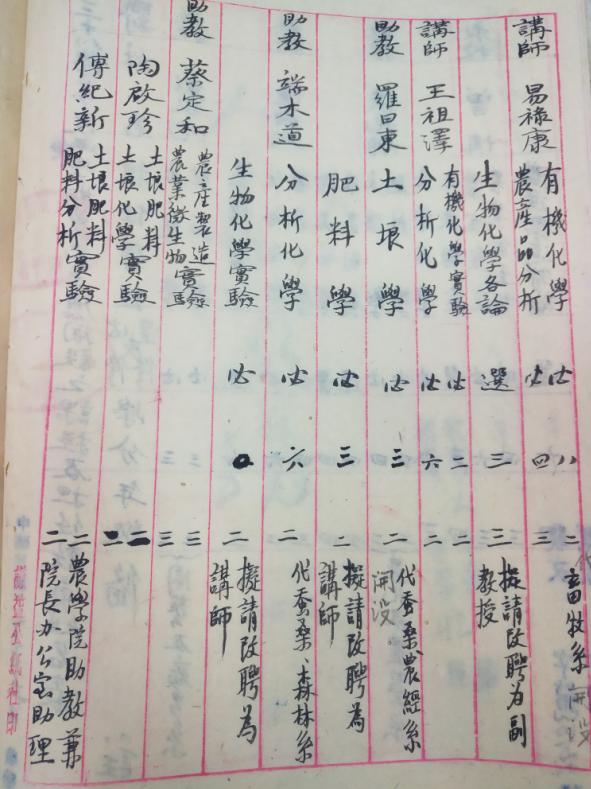 講師 易祿康 有機化學 必 八 二 代畜牧系開設
農產品分析 必 四 三
生物化學各論 選 三 擬請改聘為副教授
講師 王祖澤 有機化學實驗 必 二 二
分析化學 必 六 二
助教 羅曰東 土壤學 必 三 二 代蚕桑農經系開設
肥料學 必 三 二 擬請改聘為講師
助教 端木道 分析化學 必 六 二 代蚕桑、森林系
生物化學實驗 必 二 擬請改聘為講師
助教 蔡定和 農產製造
農業微生物實驗 三 三
陶啟珍 土壤肥料
土壤化學實驗 二 二
傅紀新 土壤肥料 二 農學院助教兼
肥料分析實驗 二 院長办公室助理